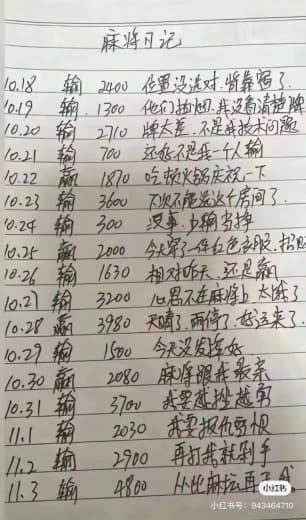 麻将日记
10.18 输 2400 位置没选对.背靠窗了.
10.19 输 1300 他们抽烟.我没看清楚牌
10.20 输 2710 牌太差.不是我技术问题
10.21 输 700 还好不是我一个人输
10.22 赢 1870 吃顿火锅庆祝一下
10.23 输 3600 下次不能选这个房间了.
10.24 输 300 没事.少输当挣
10.25 赢 2000 今天穿了一件红色衣服.
10.26 输 1630 相对昨天.还是赢
10.27 输 3200 心思不在麻将上.太饿了
10.28 赢 3980 天晴了.雨停了.好运来了.
10.29 输 1500 今天没发挥好
10.30 赢 2080 麻将跟我最亲
10.31 输 3700 我要越挫越勇
11.1 输 2030 我要报仇雪恨
11.2 输 2900 再打我就剁手
11.3 输 4800 从此麻坛再无
小红书
小红书号：943464710